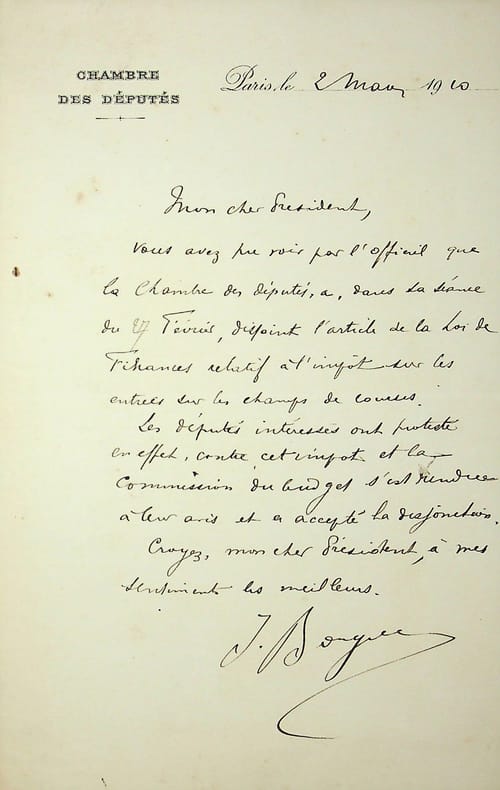 CHAMBRE
DES DÉPUTÉS
Paris, le 2 Mars 1910
Mon cher Président,
Vous avez pu voir par l'officiel que
la Chambre des députés, a, dans sa séance
du 27 Février, disjoint l'article de la Loi de
Finances relatif à l'impôt sur les
entrées sur les champs de courses.
Les députés intéressés ont protesté
en effet, contre cet impôt et la
Commission du budget s'est rendue
à leur avis et a accepté la disjonction.
Croyez, mon cher Président, à mes
sentiments les meilleurs.
J.